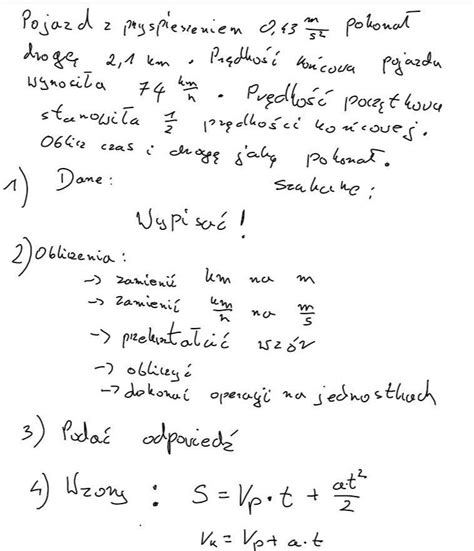 Pojazd z przyspieszeniem 0,43 m/s² pokonał
drogę 2,1 km. Prędkość końcowa pojazdu
wynosiła 74 km/h. Prędkość początkowa
stanowiła 1/2 prędkości końcowej.
Oblicz czas i drogę jaką pokonał.
1) Dane: Szukane:
Wypisać!
2) Obliczenia:
→ zamienić km na m
→ zamienić km/h na m/s
→ przekształcić wzór
→ obliczyć
→ dokonać operacji na jednostkach
3) Podać odpowiedź
4) Wzory: S = Vp · t + at²/2
Vk = Vp + a · t